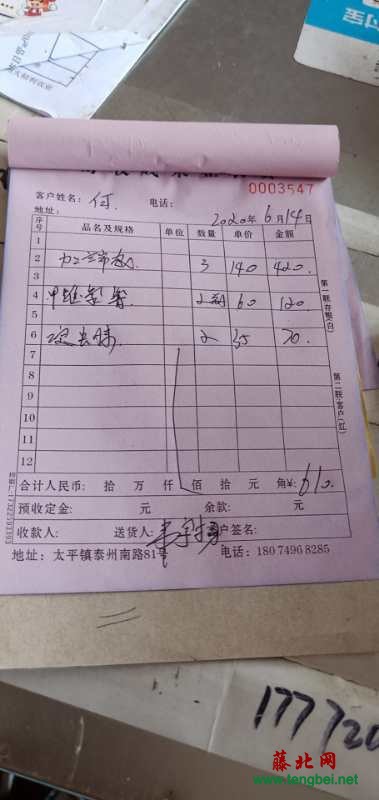 0003547
客户姓名：付 电话：
地址： 2020年6月14日
序号 品名及规格 单位 数量 单价 金额
1
2 3 140 420
3
4 甲维 2 60 120
5
6 2 35 70
7
8
9
10
11
12
第一联存根(白)
第二联:客户(红)
合计人民币： 拾 万 仟 佰 拾 元 角¥：610
预收定金： 元 余款： 元
收款人： 送货人： 客户签名：
地址：太平镇泰州南路81号 电话：180 7496 8285
177720
藤北网
www.tengbei.net